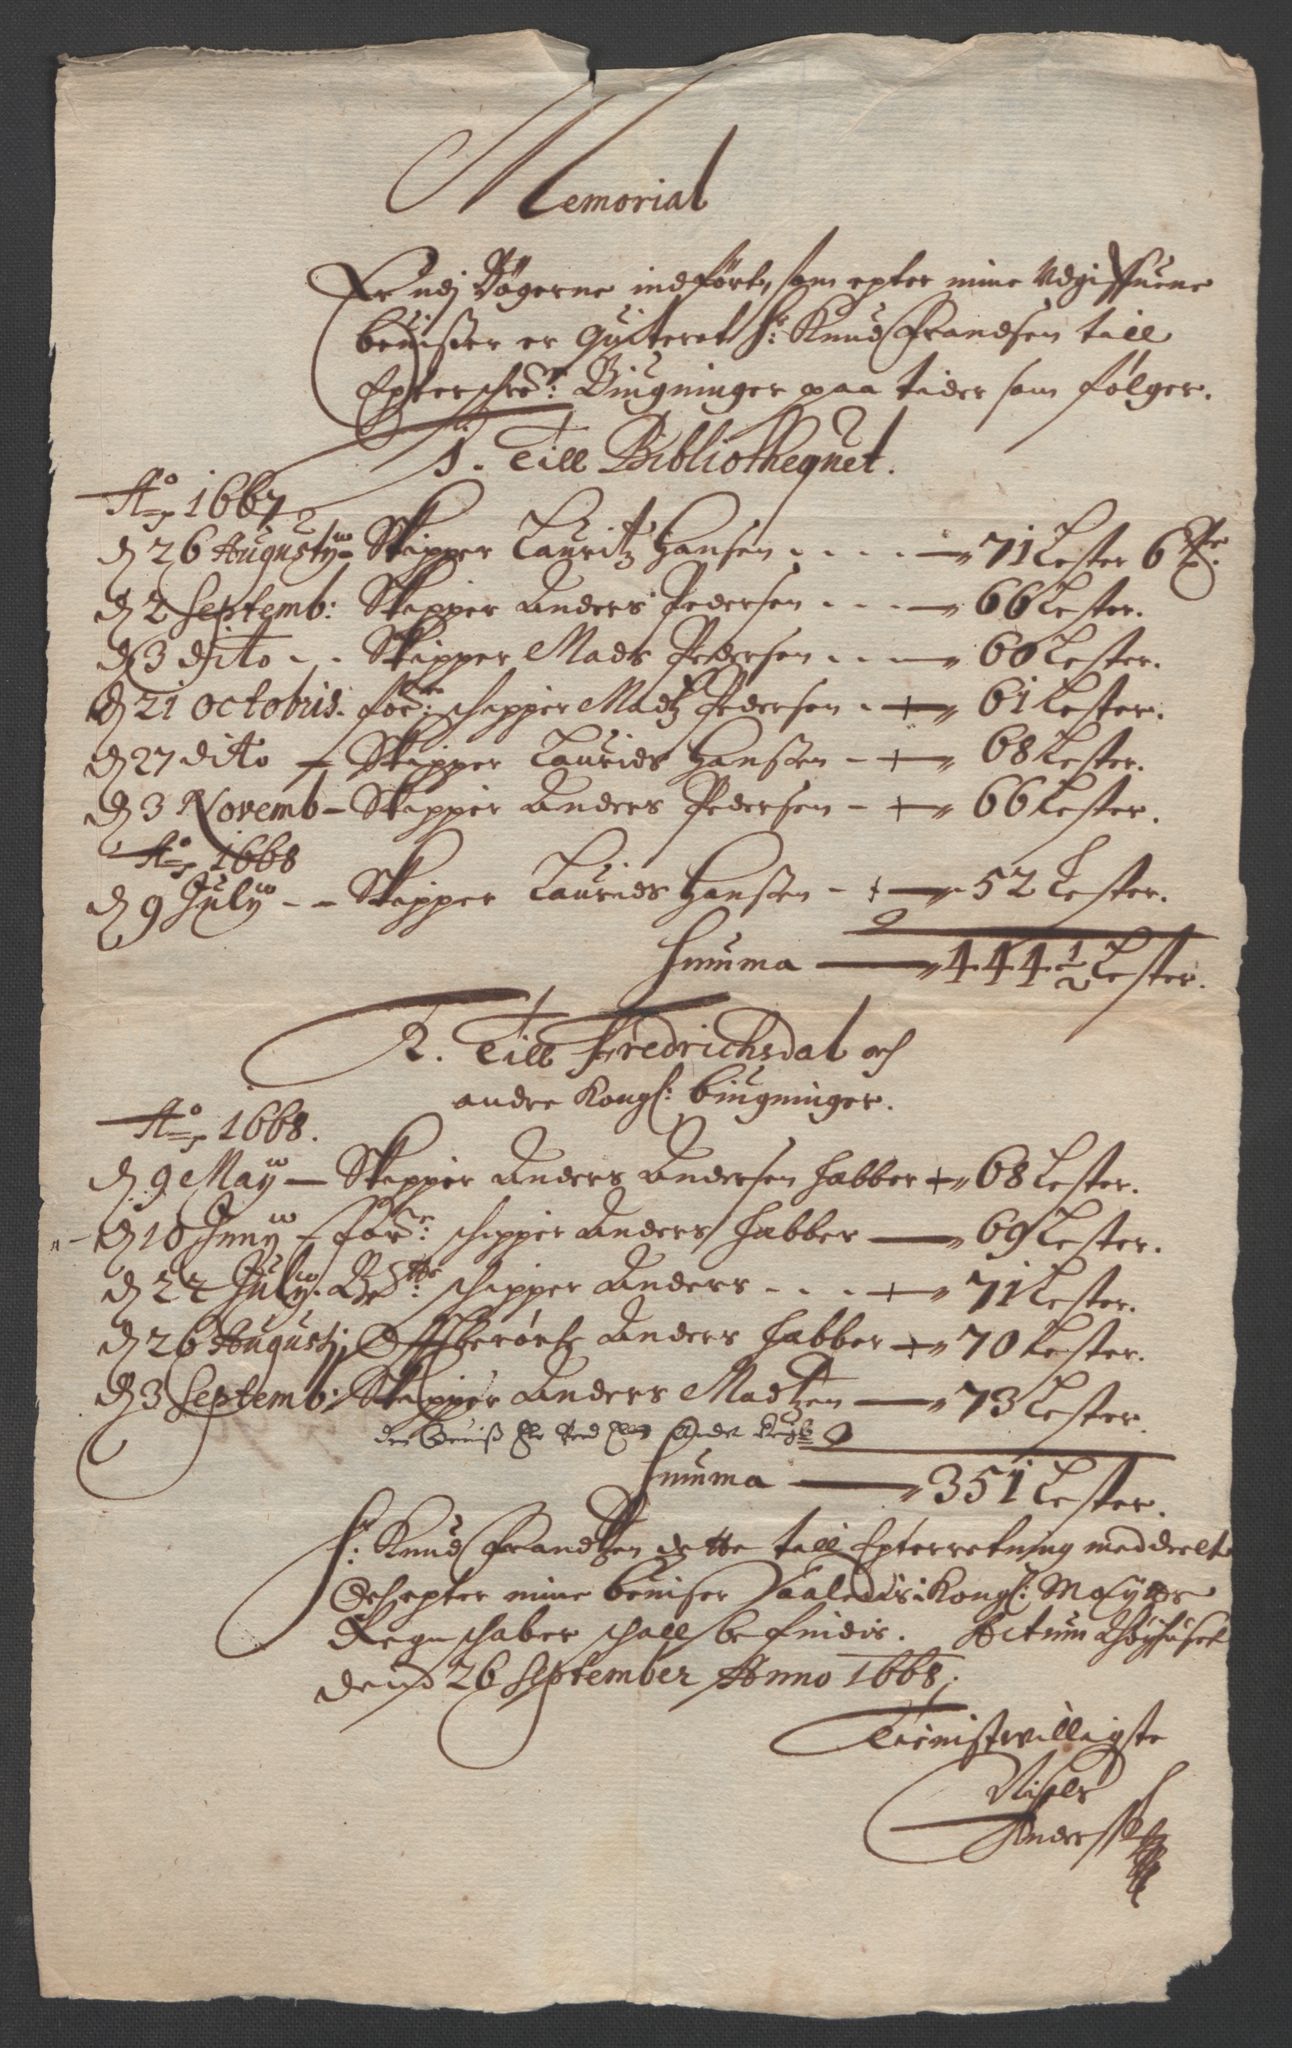 Memorial
Er udj Bøgerne indført, som epter mine Udgiffuene
beuißer er Quiteret Sr: Knud Frandsen till
Epterschreffne: Biugninger paa tider som følger.
1. Till Bibliotheqvet.
Ao 1667
d 26 Augusty Skipper Lauritz Hansen . . . . — 71 Lester 6 Tr.
d 2 Septemb: Skipper Anders Pedersen . . . — 66 Lester.
d 3 dito . . Skipper Mads Pedersen . . — 60 Lester.
d 21 Octobris. for: schipper Madtz Pedersen . — 61 Lester.
d 27 dito — Skipper Laurids Hanßen - — 68 Lester.
d 3 Novemb — Skipper Anders Pedersen - — 66 Lester.
Ao 1668
d 9 July - - Skipper Laurids Hanßen - — 52 Lester.
Summa — 444 1/2 Lester.
2. Till Fredrichsdal och
andre Kongl: biugninger.
Ao 1668.
d 9 May — Skipper Anders Andersen Habber — 68 Lester.
d 18 Juny — for: schipper Anders Habber — 69 Lester.
d 22 July. Bte: schipper Anders . . . — 71 Lester.
d 26 Augustj, Offtberørte Anders Habber — 70 Lester.
d 3 Septemb: Skipper Anders Madtzen — 73 Lester.
den Beuiß
Summa — 351 Lester.
Sr: Knud Frandtzen dette till Epterretning meddeelt
epter mine beuiser Saaledis i Kongl: Maytts
Regnschaber schall befindis. Actum
dend 26 September Anno 1668.
Tienistvilligste
Niels
Anderss